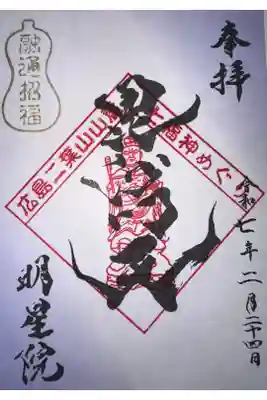 奉拝
融通招福
広島二葉山山
七福神めぐ
毘沙門天
令和七年二月二十四日
明星院